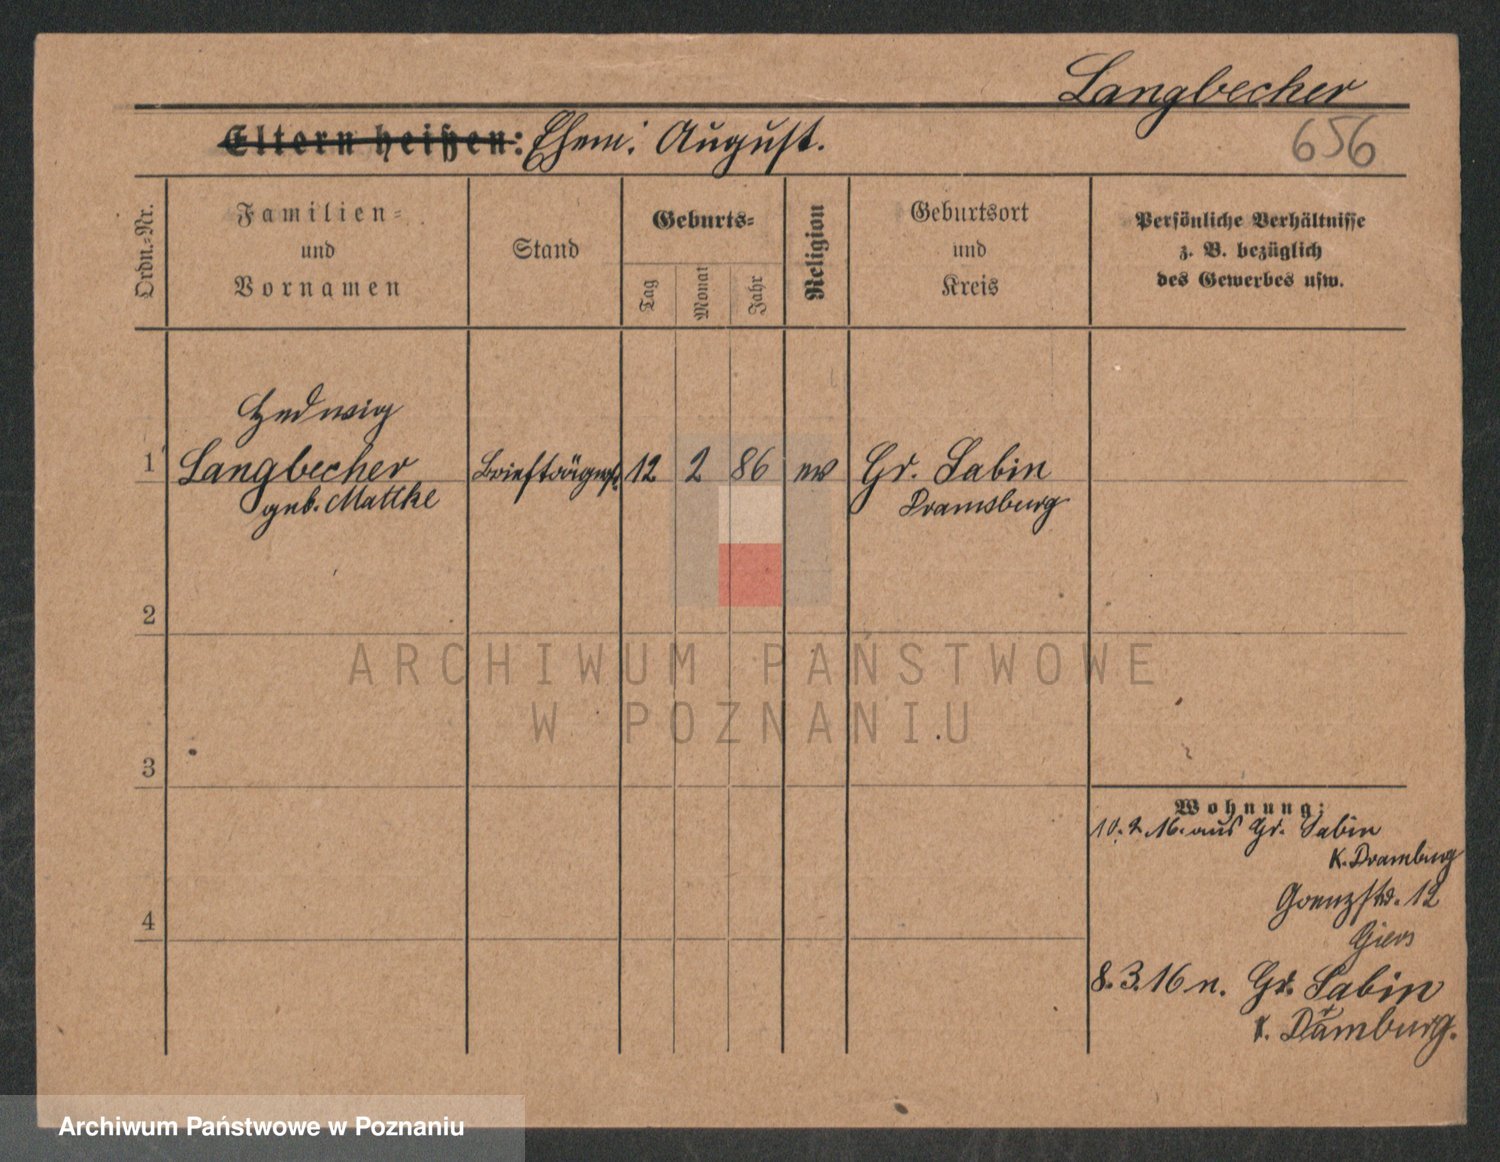 Langbecher
656
Eltern heißen: Ehem: August.
Ordn.=Nr.
Familien=
und
Vornamen
Stand
Geburts=
Tag
Monat
Jahr
Religion
Geburtsort
und
Kreis
Persönliche Verhältnisse
z. B. bezüglich
des Gewerbes usw.
Hedwig
1 Langbecher 12 2 86 ev Gr. Sabin
geb. Mattke Dramsburg
2
ARCHIWUM PAŃSTWOWE
W POZNANIU
3
Wohnung:
10.2.16. aus Gr. Sabin
K. Dramburg
4
12
8.3.16 n. Gr. Sabin
K. Dramburg.
Archiwum Państwowe w Poznaniu